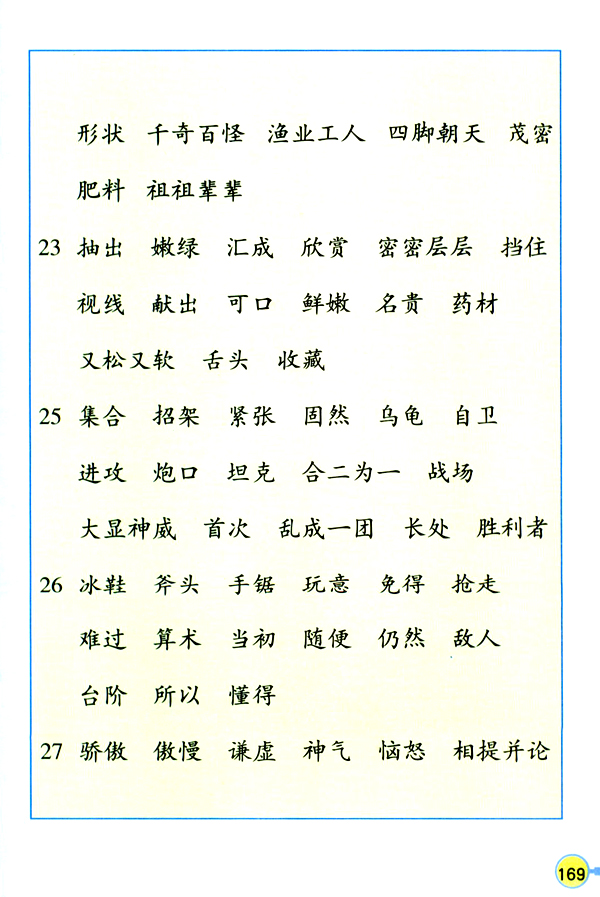 形状 千奇百怪 渔业工人 四脚朝天 茂密
肥料 祖祖辈辈
23 抽出 嫩绿 汇成 欣赏 密密层层 挡住
视线 献出 可口 鲜嫩 名贵 药材
又松又软 舌头 收藏
25 集合 招架 紧张 固然 乌龟 自卫
进攻 炮口 坦克 合二为一 战场
大显神威 首次 乱成一团 长处 胜利者
26 冰鞋 斧头 手锯 玩意 免得 抢走
难过 算术 当初 随便 仍然 敌人
台阶 所以 懂得
27 骄傲 傲慢 谦虚 神气 恼怒 相提并论
169